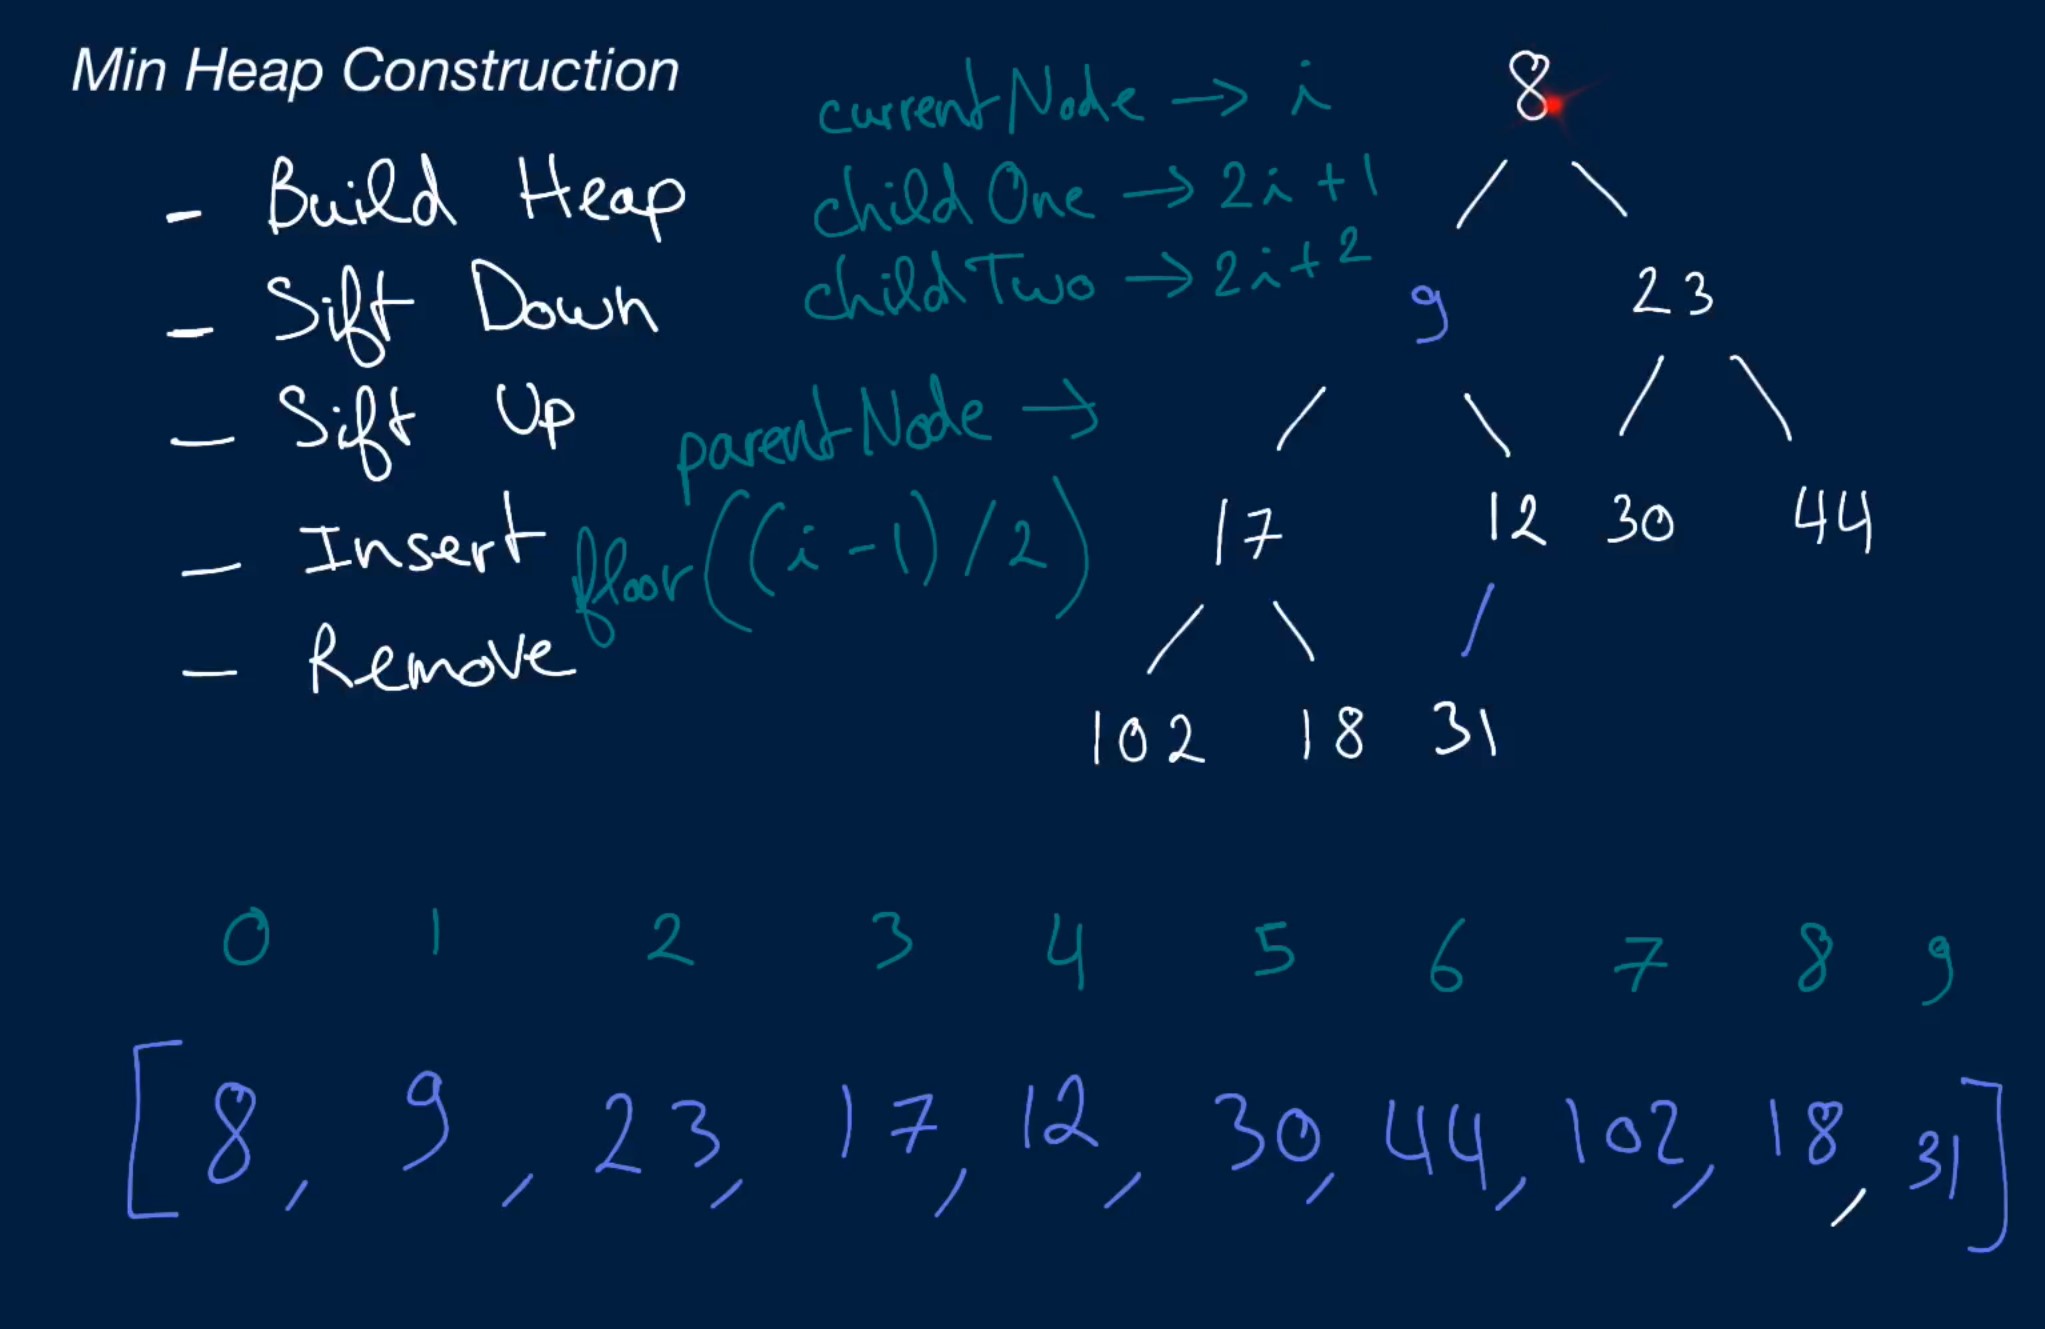 Min Heap Construction
- Build Heap
- Sift Down
- Sift Up
- Insert
- Remove
currentNode → i
childOne → 2i+1
childTwo → 2i+2
parentNode →
floor((i-1)/2)
8
9 23
17 12 30 44
102 18 31
0 1 2 3 4 5 6 7 8 9
[8, 9, 23, 17, 12, 30, 44, 102, 18, 31]